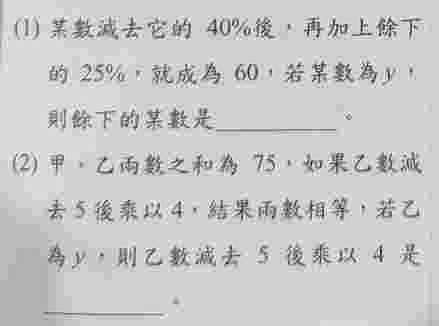 (1) 某數減去它的 40%後，再加上餘下
的 25%，就成為 60，若某數為y，
則餘下的某數是____________。
(2) 甲、乙兩數之和為 75，如果乙數減
去 5 後乘以 4，結果兩數相等，若乙
為y，則乙數減去 5 後乘以 4 是
____________。